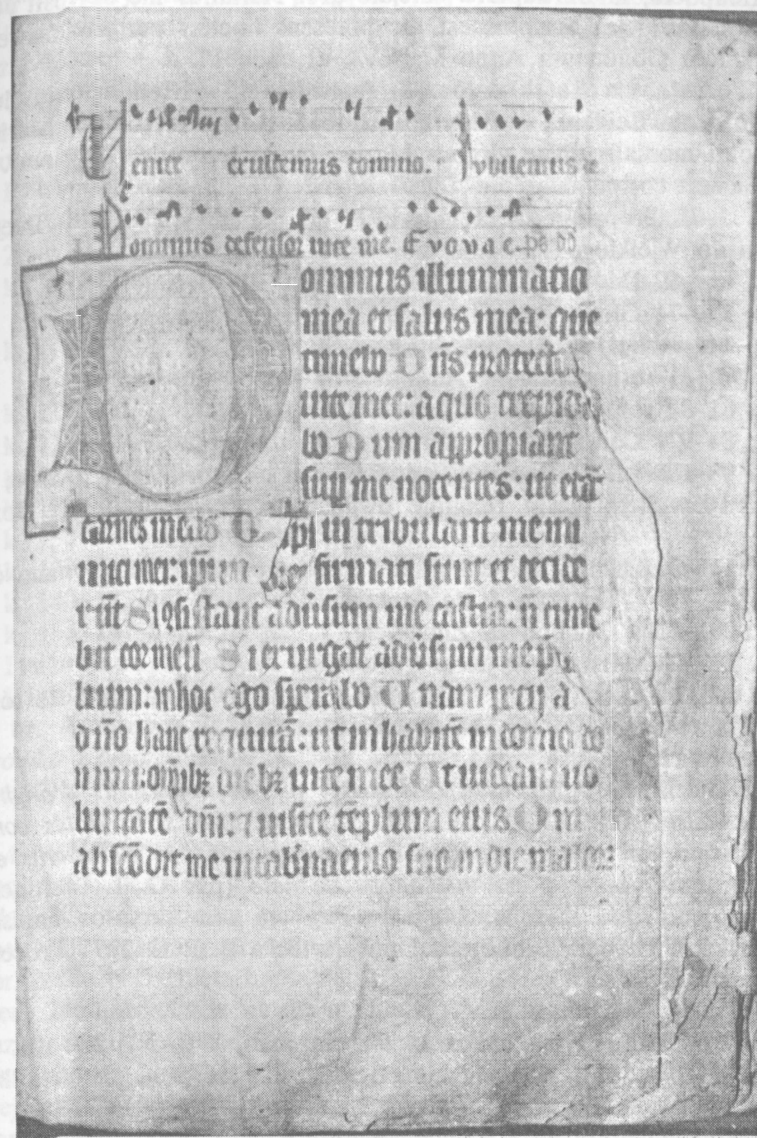 enite exultemus domino. Jubilemus &
Dominus defensor uite me. Euouae. ps dd
Dominus illuminatio
mea et salus mea: quē
timebo Dn̄s protector
uite mee: a quo trepida
bo Dum appropiant
sup me nocentes: ut edāt
carnes meas Q̄ tribulant me ini
mici mei: ip̄i firmati sunt et cecide
rūt Si cōsistant adūsum me castra: n̄ time
bit cor meū Si exurgat adūsum me p̄
lium: in hoc ego sperabo Unam pecij a
dn̄o hanc requirā: ut inhabitē in domo do
mini: om̄ibꝫ diebꝫ uite mee Ut uideam uo
luntatē dn̄i: ⁊ uisitē tēplum eius Qm̄
abscōdit me in tab̄naculo suo in die maloꝝ